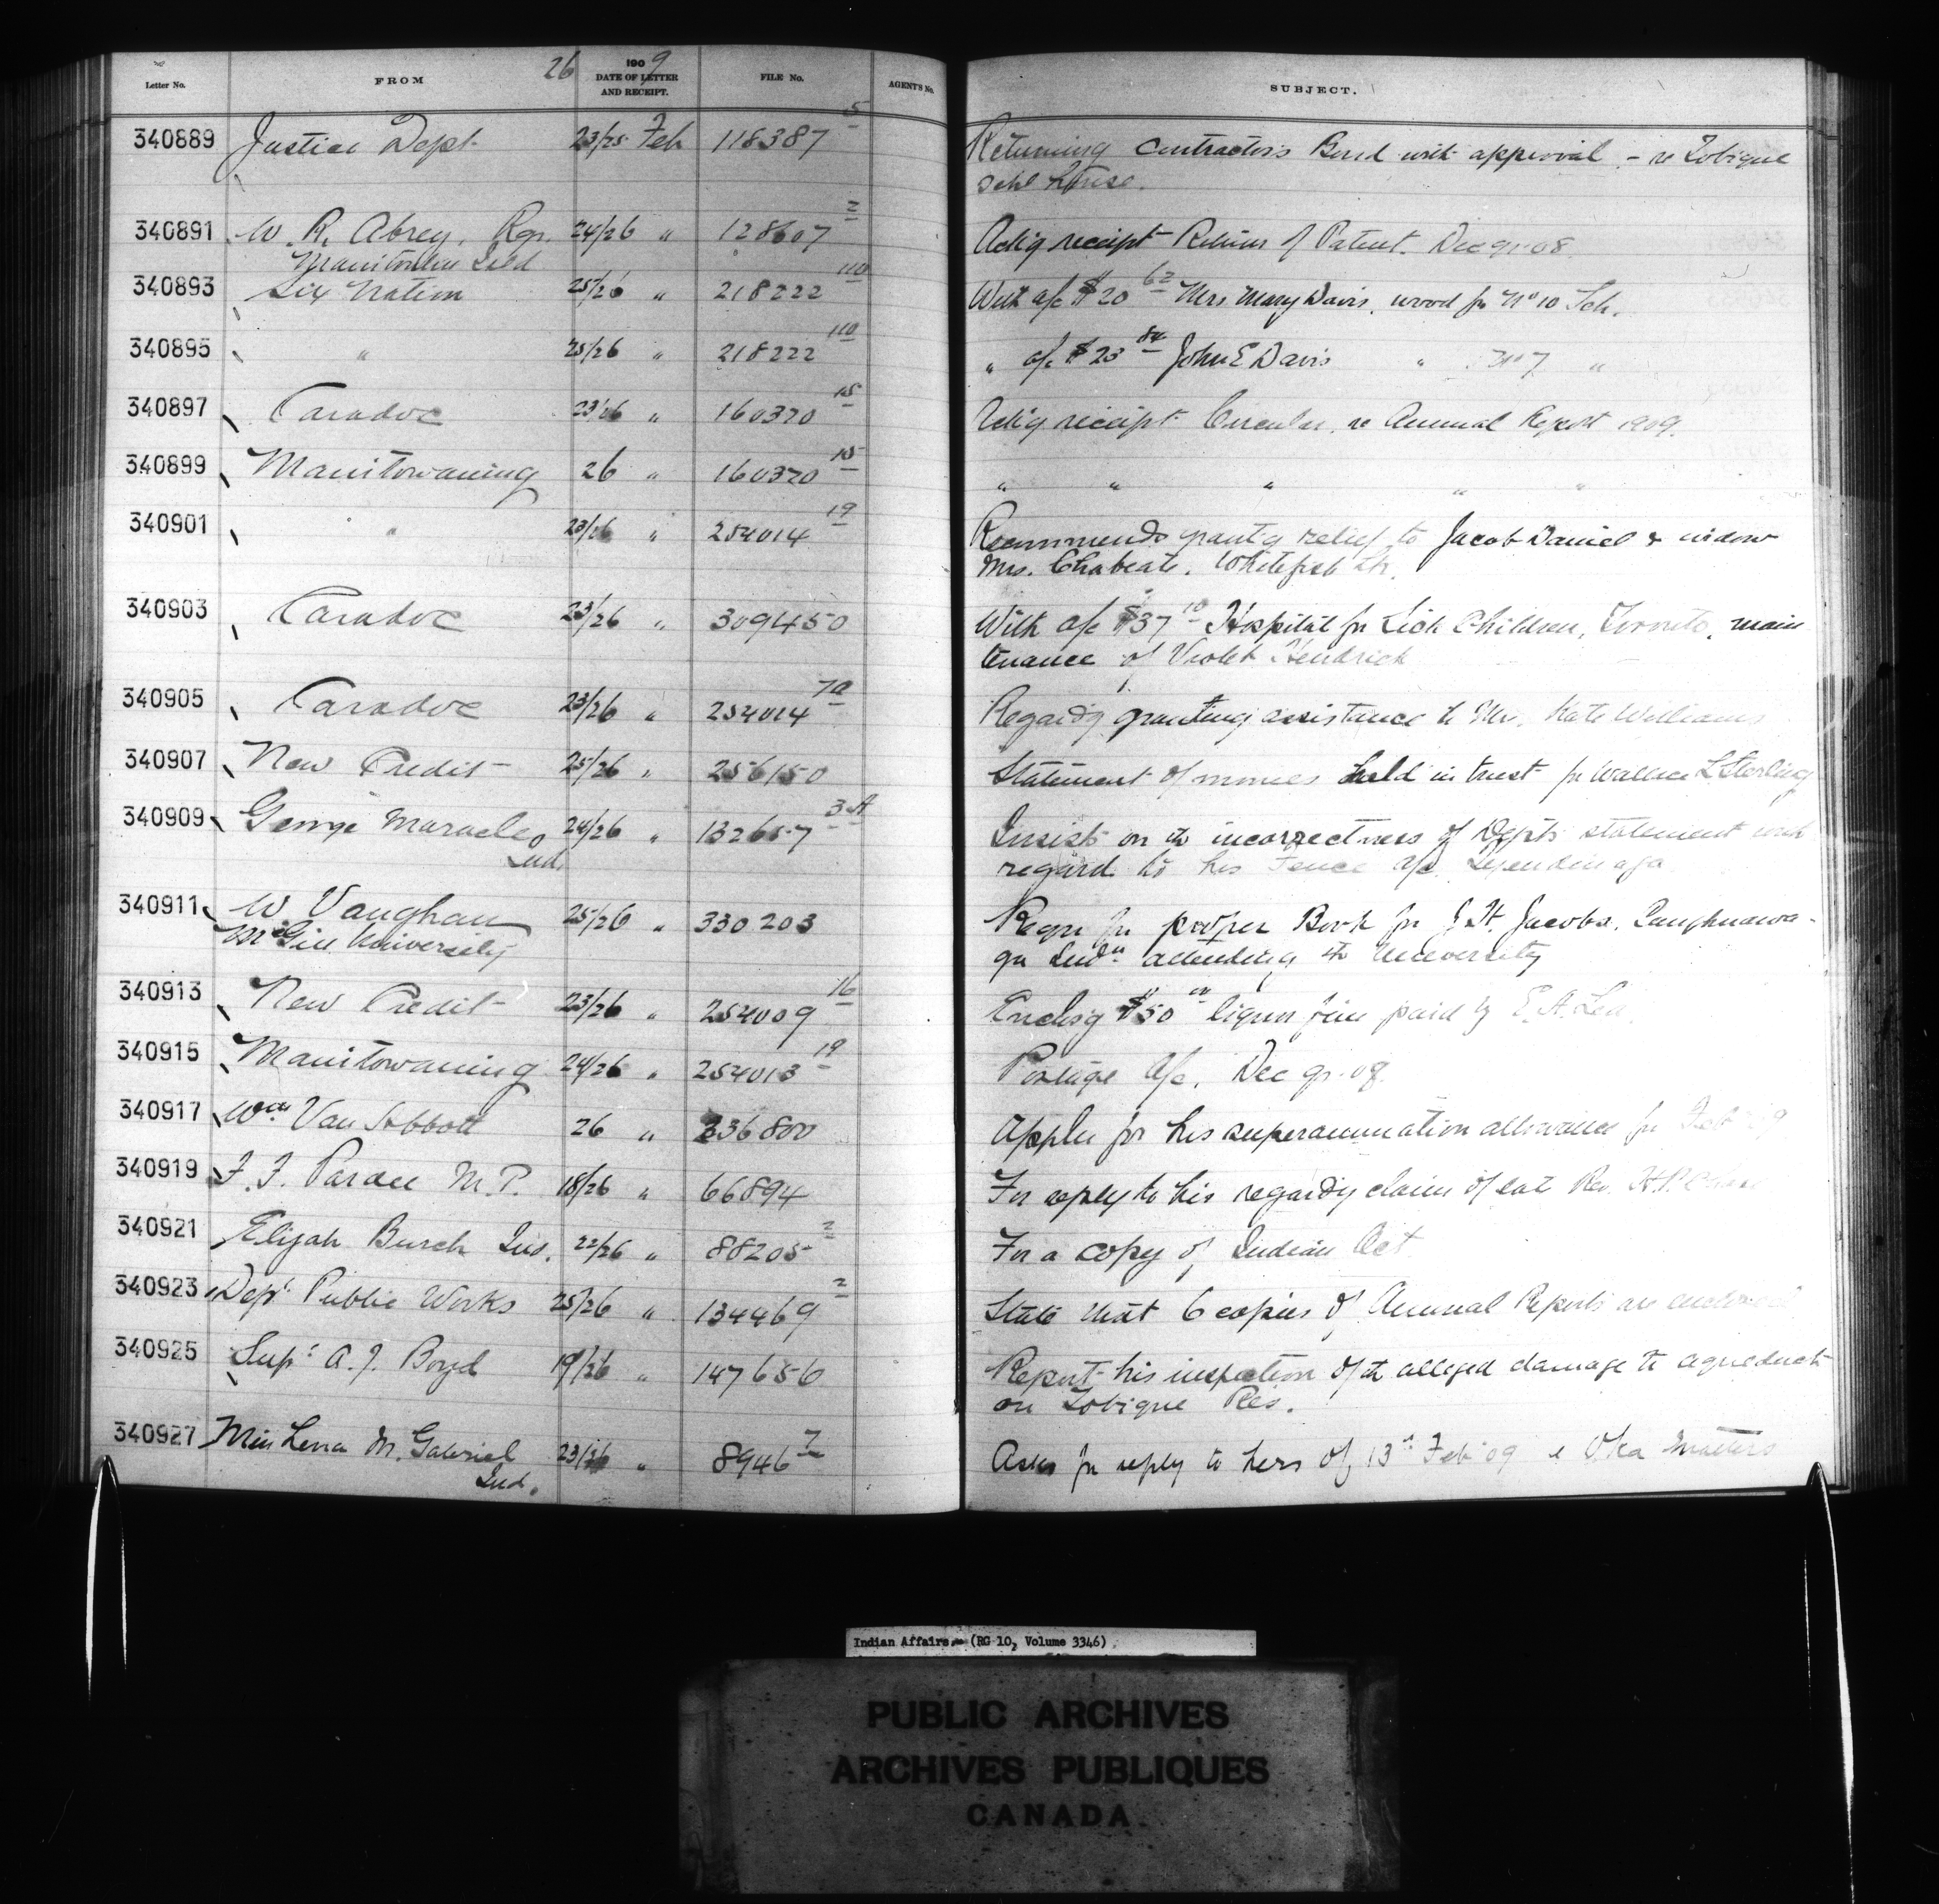 Letter No. FROM 26 1909 DATE OF LETTER AND RECEIPT. FILE No. AGENT'S No. SUBJECT.
340889 Justice Dept. 23/25 Feb 118387 5 Returning Contractors Bond with approval - re Tobique
Schl House.
340891 W. R. Abrey, Rgr. 24/26 " 128607 2 Ackg receipt Return of Patent. Dec qr 08
Manitoulin
340893 Six Nation 25/26 " 218222 110 With a/c $20 62 Mrs Mary Davis, wood for No 10 Sch.
340895 " 25/26 " 218222 110 " a/c $23 84 John E Davis " No 7 "
340897 Caradoc 23/26 " 160370 15 Ackg receipt Circular, re Annual Report 1909.
340899 Manitowaning 26 " 160370 15 " " " " "
340901 " 23/26 " 254014 19 Recommends grantg relief to Jacob Daniel & widow
Mrs. Whitefish
340903 Caradoc 23/26 " 309450 With a/c $37 10 Hospital for Sick Children, Toronto, main
tenance of Violet Kendrick
340905 Caradoc 23/26 " 254014 7a Regardg granting assistance to Mrs. Kate Williams
340907 New Credit 25/26 " 256150 Statement of monies held in trust for Wallace L Sterling
340909 George Maracle 24/26 " 132657 3A Insists on the incorrectness of Depts statement with
Ind. regard to his Fence a/c
340911 W. Vaughan 25/26 " 330203 Reqn for proper Book for J. H. Jacobs. Caughnawa-
McGill University ga Indn attending the University
340913 New Credit 23/26 " 254009 16 Enclsg $50 00 liquor fine paid by E. A. Lea
340915 Manitowaning 24/26 " 254013 19 Postage a/c, Dec qr. 08
340917 Wm Van Abbott 26 " 336800 Applies for his superannuation allowance for Feb
340919 F. F. Pardee M. P. 18/26 " 66894 For reply to his regardg claim of late Rev. H. P. Chase
340921 Elijah Burch Ind. 22/26 " 88205 2 For a copy of Indian Act
340923 Dept Public Works 25/26 " 134469 2 State that 6 copies of Annual Reports are enclosed
340925 Supt A. J. Boyd 19/26 " 147656 Report his inspection of the alleged damage to aqueduct
on Tobique Res.
340927 Miss Lena M. Gabriel 23/26 " 8946 7 Asks for reply to hers of 13th Feb 09 re Oka Matters
Ind.
Indian Affairs. (RG 10, Volume 3346)
PUBLIC ARCHIVES
ARCHIVES PUBLIQUES
CANADA